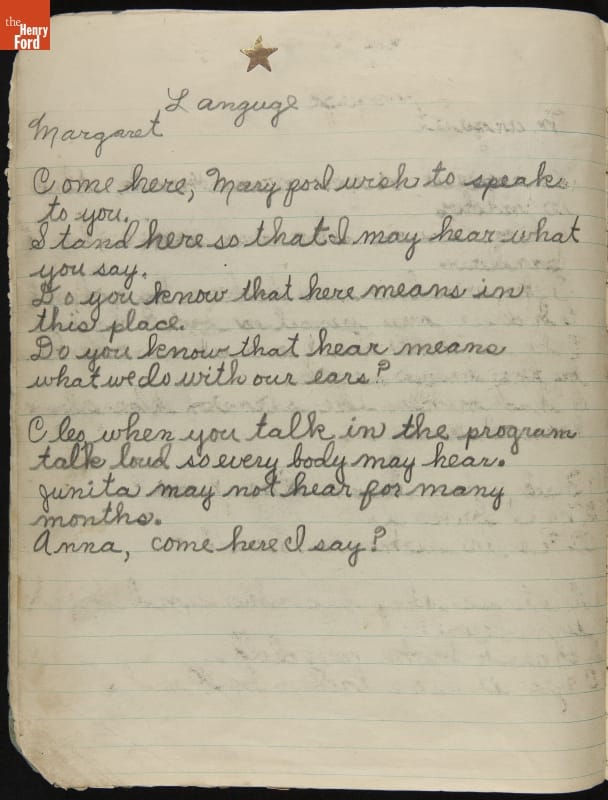 the
Henry
Ford
Languge
Margaret
Come here, Mary for I wish to speak
to you.
Stand here so that I may hear what
you say.
Do you know that here means in
this place.
Do you know that hear means
what we do with our ears?
Cleo when you talk in the program
talk loud so every body may hear.
Junita may not hear for many
months.
Anna, come here I say?